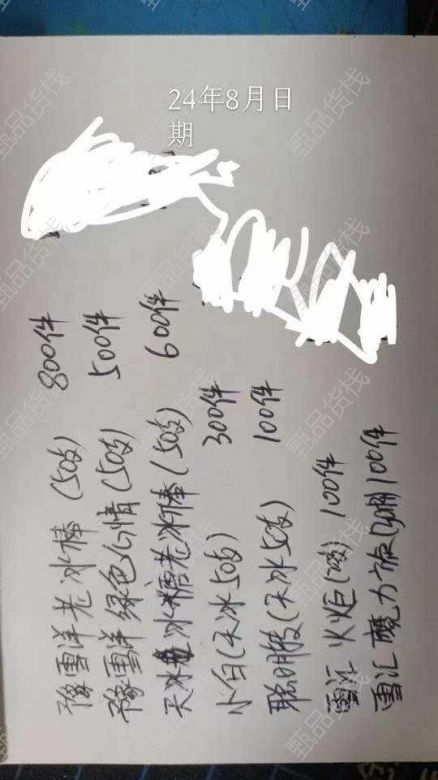 24年8月日
期
豫雪洋老冰棒(50支) 800件
豫雪洋绿色心情(50支) 500件
天冰 冰糖老冰棒(50支) 600件
小白(天冰50支) 300件
聪明 (天冰50支) 100件
雪汇 火炬( 支) 100件
雪汇 魔力旋 100件
甄品货栈